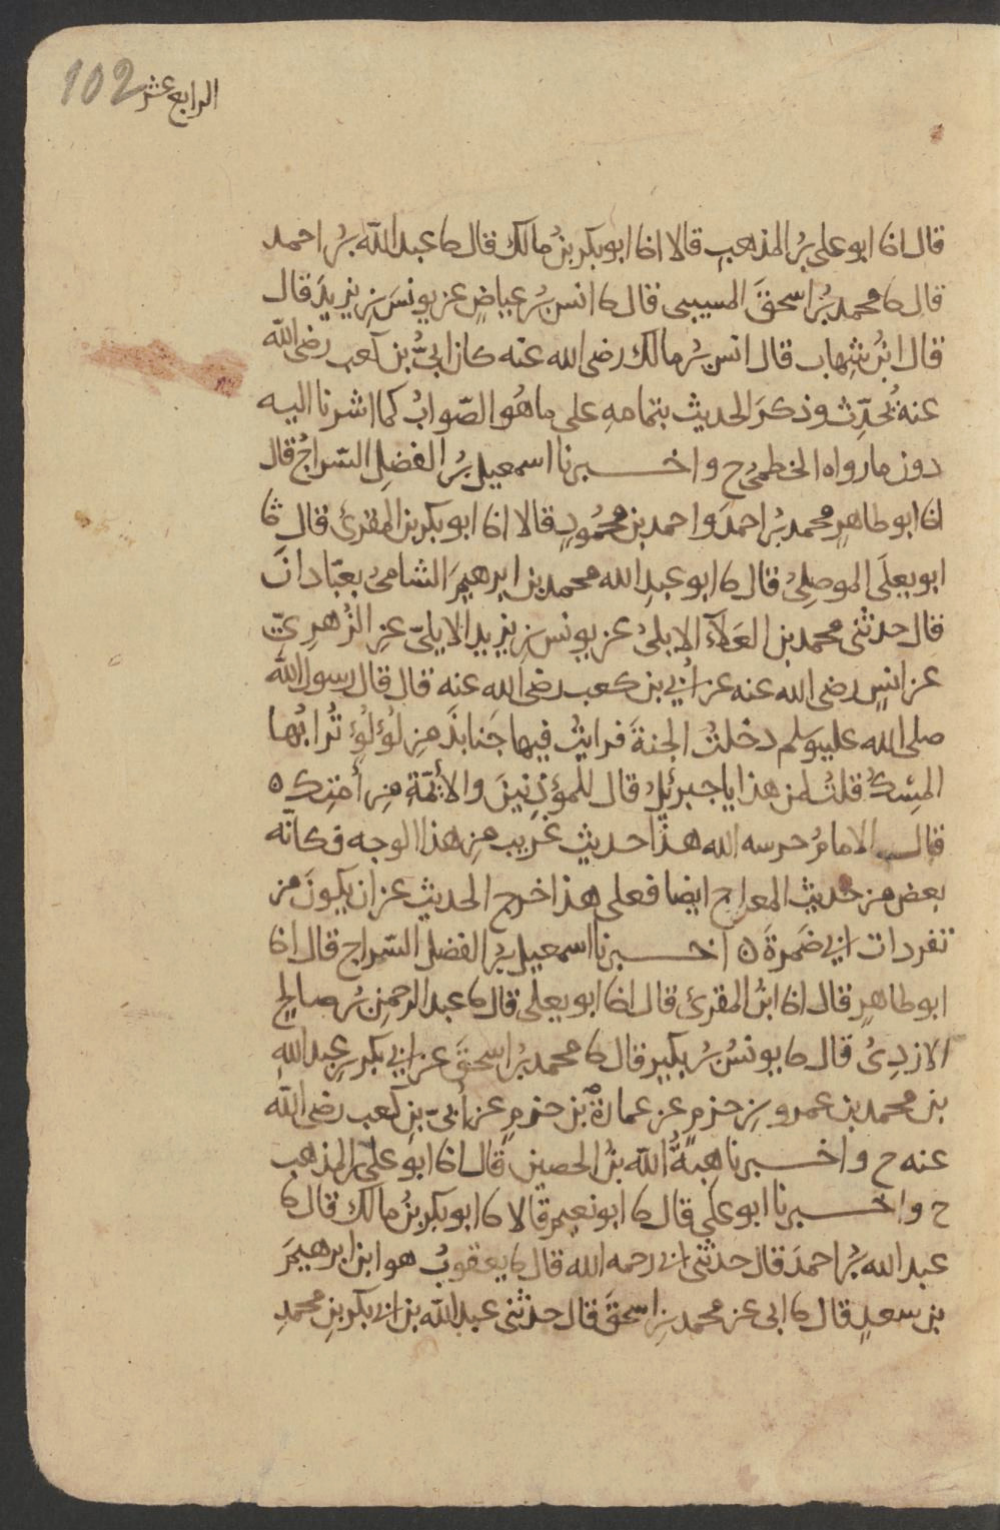 الرابع عشر 102
قال انا ابو على بن المذهب قالا انا ابو بكر بن مالك قال نا عبد الله بن احمد
قال نا محمد بن اسحق المسيبى قال نا انس بن عياض عن يونس بن يزيد قال
قال ابن شهاب قال انس بن مالك رضى الله عنه كان ابىّ بن كعب رضى الله
عنه يُحدّث وذكرَ الحديث بتمامهِ على ما هُو الصّوابُ كما اشرنا اليه
دون ما رواه الخطمىُ ح واخبرنا اسمعيل بن الفضلِ السّراجُ قال
انا ابو طاهرٍ محمد بن احمدَ واحمد بن محمُودٍ قالا انا ابو بكر بن المقرئ قال ثا
ابو يعلَى الموصِلىُ قال نا ابو عبدِ الله محمد بن ابرهيمَ الشامىُ بعبّادانَ
قال حدثنى محمد بن العَلآءِ الايلىُ عن يونس بن يزيد الايلىّ عن الزُهرِىّ
عن انسٍ رضى الله عنه عن أُبي بن كعب رضى الله عنه قال قال رسول الله
صلى الله عليه وسلم دخلتُ الجنةَ فرايتُ فيها جَنابذَ مِن لُؤلُؤٍ تُرابُها
المِسْكُ قلتُ لمن هذا يا جبرئلُ قال للمؤذِنينَ والأئمّةِ مِن أمتِك ه
قال الامامُ حرسه الله هذا حديث غريب مِن هذا الوجه فكأنّه
بعض من حديث المعراج ايضا فعلى هذا خرج الحديث عن ان يكونَ من
تفردات ابي ضَمرةَ ه اخبرنا اسمعيل بن الفضل السّراج قال انا
ابو طاهرٍ قال انا ابنُ المقرئ قال انا ابو يعلى قال نا عبد الرحمن بن صالحٍ
الازدِىُ قال نا يونسُ بنُ بكيرٍ قال نا محمد بن اسحقَ عن ابي بكر بن عبد اللهِ
بن محمد بن عمرو بنِ حزمٍ عن عمارة بن حزمٍ عن أُبىّ بنِ كعب رضى الله
عنه ح واخبرنا هبةُ الله بنُ الحصين قال انا ابو علىّ بن المذهب
ح واخبرنا ابو على قال نا ابو نعيم قالا نا ابو بكر بنُ مالك قال نا
عبد الله بن احمدَ قال حدثنى ابي رحمه الله قال نا يعقوبُ هو ابن ابرهيمَ
بن سعدٍ قال نا ابى عن محمد بنِ اسحقَ قال حدثنى عبد الله بن ابي بكر بنِ محمدِ